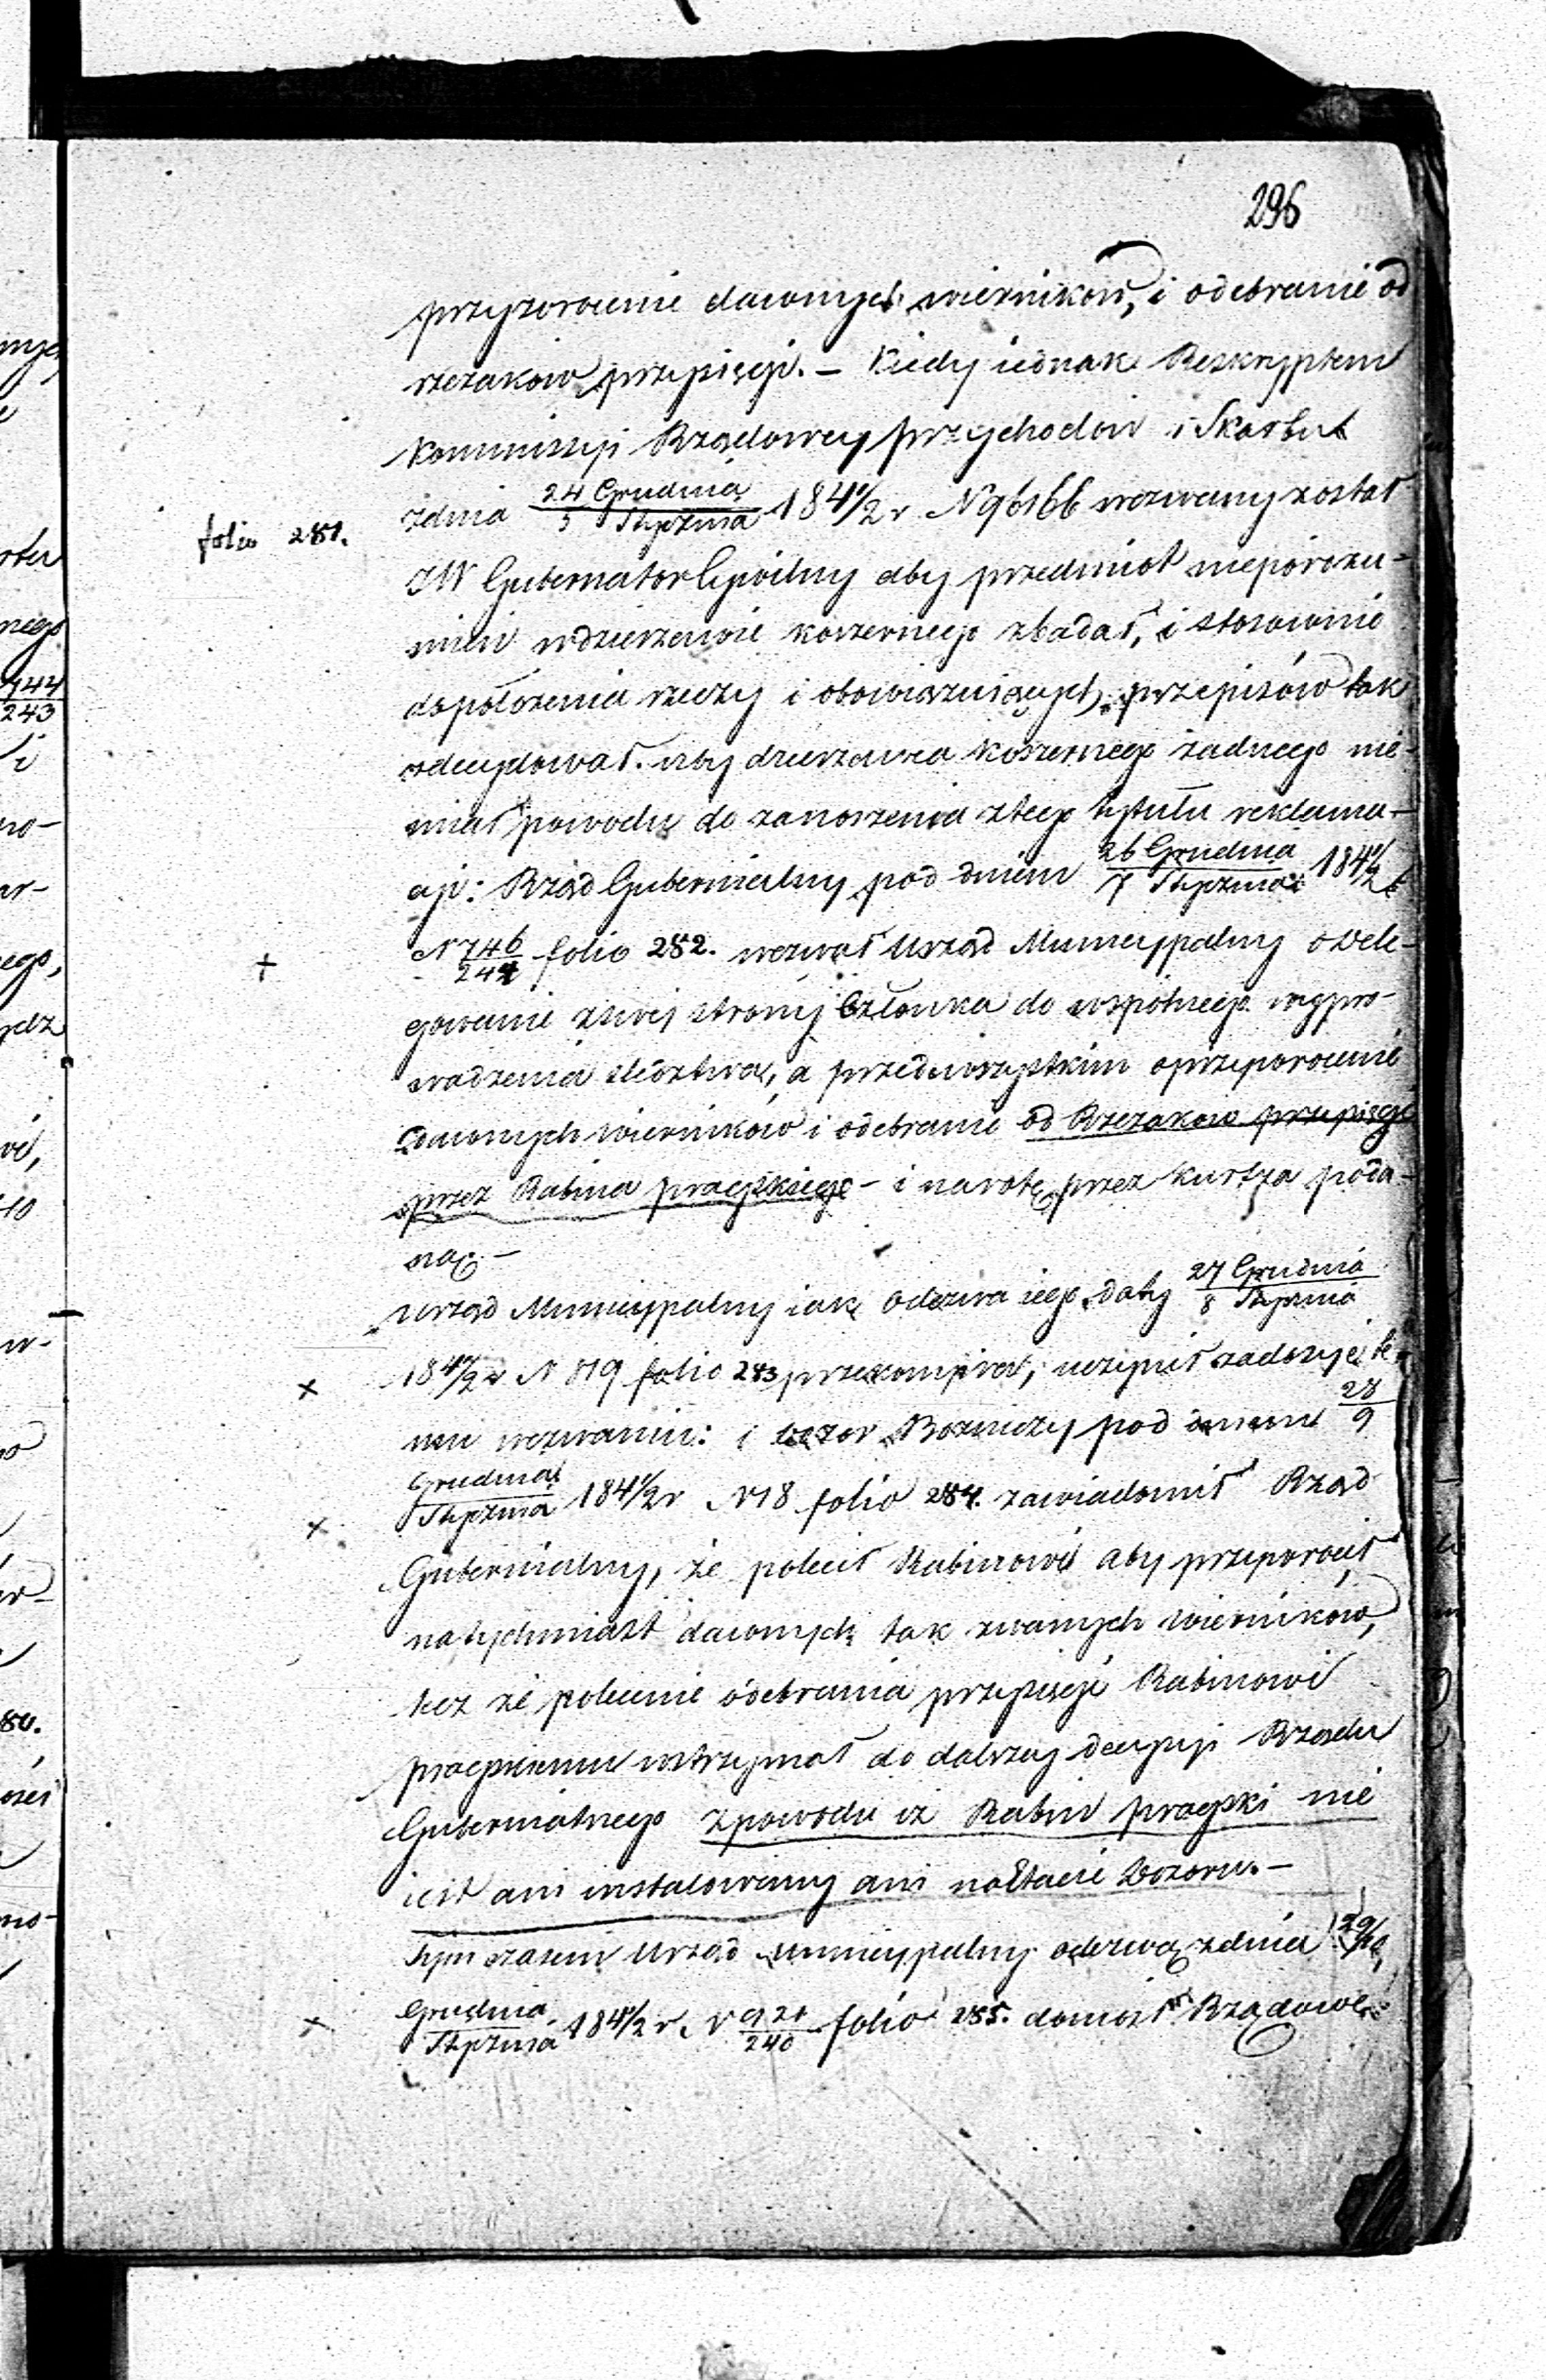 296
przyzwoicie dawnych wierników, i odebranie od
rzezaków przysięgi. – Kiedy iednak Reskryptem
Kommissyi Rządowey Przychodów i Skarbu
zdnia 24 Grudnia / 5 Stycznia 1841/2 r N 96166 wezwany został
folio 281.
JW Gubernator Cywilny aby przedmiot nieporozu-
mień wdzierżawie koszernego zbadał, i stosownie
do położenia rzeczy i obowiązuiących przepisów tak
zdecydował. aby dzierżawca koszernego żadnego nie
miał powodu do zanoszenia ztego tytułu reklama-
cyi: Rząd Gubernialny pod dniem 26 Grudnia / 7 Stycznia 1841/2 r
+
N 746/244 folio 282. wezwał Urząd Municypalny o dele-
gowanie zswej strony Członka do wspólnego wypro-
wadzenia śledztwa, a przedewszystkim o
dawnych wierników i odebranie od Rzezaków przysięgi
przez Rabina pragskiego – i na rotę przez Kurtza poda-
ną. –
Urząd Municypalny iak odezwa iego daty 27 Grudnia / 8 Stycznia
×
1841/2 r N 819 folio 283 przekonywa, uczynił zadosyć te-
mu wezwaniu: i Dozor Bozniczy pod dniem 28/9
×
Grudnia / Stycznia 1841/2 r N 18 folio 284. zawiadomił Rząd
Gubernialny, że polecił Rabinowi aby
natychmiast dawnych tak zwanych wierników,
lecz że polecenie odebrania przysięgi Rabinowi
pragskiemu wstrzymał do dalszey decyzyi Rządu
Gubernialnego zpowodu iż Rabin pragski nie
iest ani instalowany ani na Etacie Dozoru. –
Tym czasem Urząd Municypalny odezwą zdnia 29/10
×
Grudnia / Stycznia 1841/2 r. N 921/240 folio 285. doniosł Rządowi